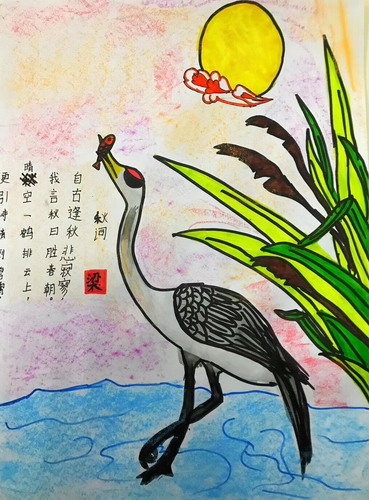 秋词
自古逢秋悲寂寥,
我言秋日胜春朝。
晴空一鹤排云上,
更引
梁